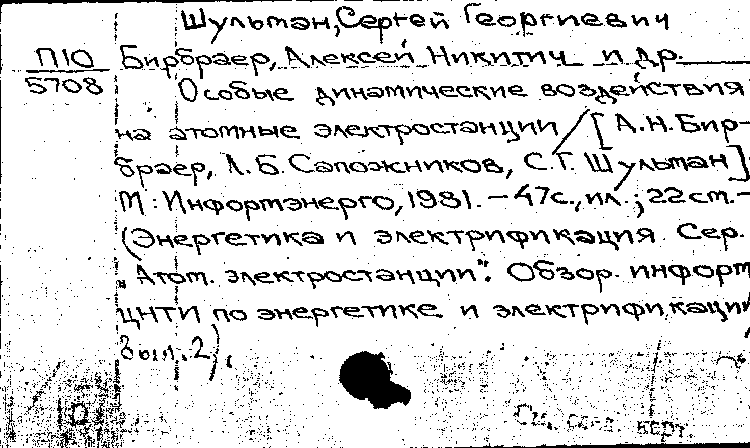 Шульман, Сергей Георгиевич
П10 Бирбраер, Алексей Никитич и др.
5708 Особые динамические воздействия
на атомные электростанции / [А.Н. Бир-
браер, Л.Б. Сапожников, С.Г. Шульман].
М: Информэнерго, 1981. – 47с., ил.; 22 см. –
(Энергетика и электрификация. Сер.
„Атом. электростанции": Обзор. информ
ЦНТИ по энергетике и электрификации
Вып. 2).
См. след. карт.